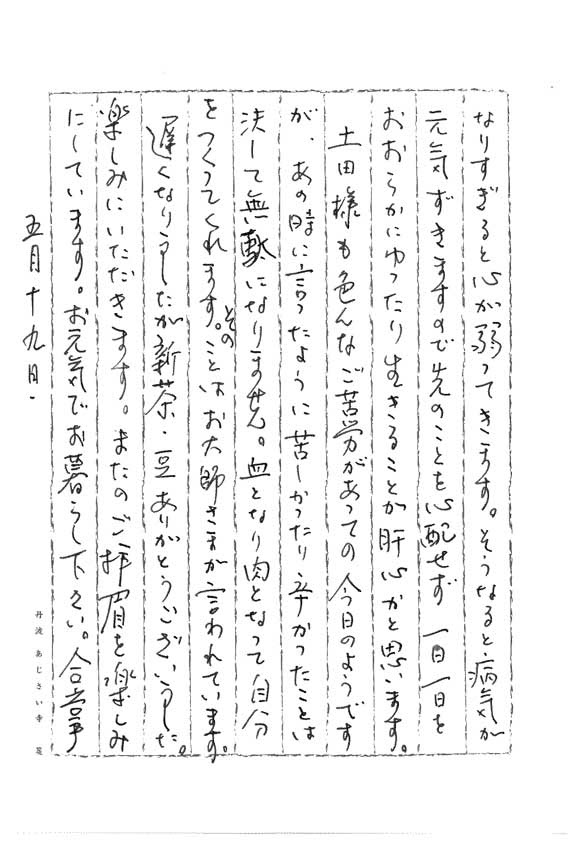 なりすぎると心が弱ってきます。そうなると病気が
元気ずきますので先のことを心配せず 一日一日を
おおらかにゆったり生きることが肝心かと思います。
土田様も色んなご苦労があっての今日のようです
が、あの時に言ったように苦しかったり辛かったことは
決して無駄になりません。血となり肉となって自分
をつくってくれます。そのことはお大師さまが言われています。
遅くなりましたが新茶・豆ありがとうございました。
楽しみにいただきます。またのご拝眉を楽しみ
にしています。お元気でお暮らし下さい。合掌
五月十九日.
丹波 あじさい寺